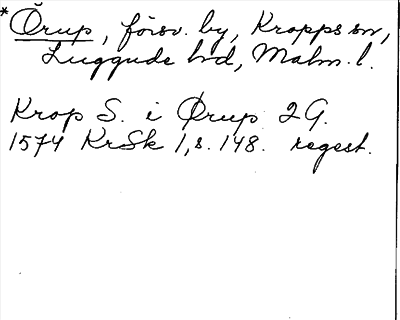 *Örup, försv. by, Kropps sn,
Luggude hd, Malm. l.
Krop S. i Ørup 2 G.
1574 KrSk 1, s. 148. regest.